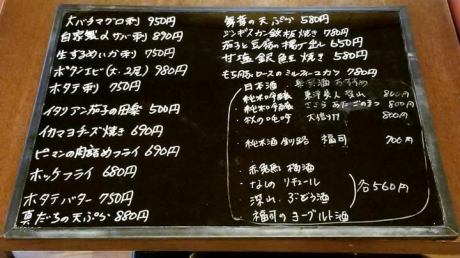 大バチマグロ刺 950円
自家製〆サバ刺 890円
生するめいか刺 750円
ボタンエビ(大・2尾) 980円
ホタテ刺 750円
イタリアン茄子の田楽 500円
イカマヨチーズ焼き 690円
ピーマンの肉詰めフライ 690円
ホッケフライ 680円
ホタテバター 750円
真だちの天ぷら 880円
舞茸の天ぷら 580円
ジンギスカン鉄板焼き 780円
茄子と豆腐の揚げ出し 650円
甘塩銀鮭焼き 580円
もち豚ロースのミルフィーユカツ 780円
日本酒
純米吟醸 800円
純米吟醸 あたごのまつ 800円
・秋の吟 800円
・純米酒 釧路 福司 700円
・赤兎馬 梅酒
・なしのリキュール
・深山ぶどう酒
・福司のヨーグルト酒
各560円